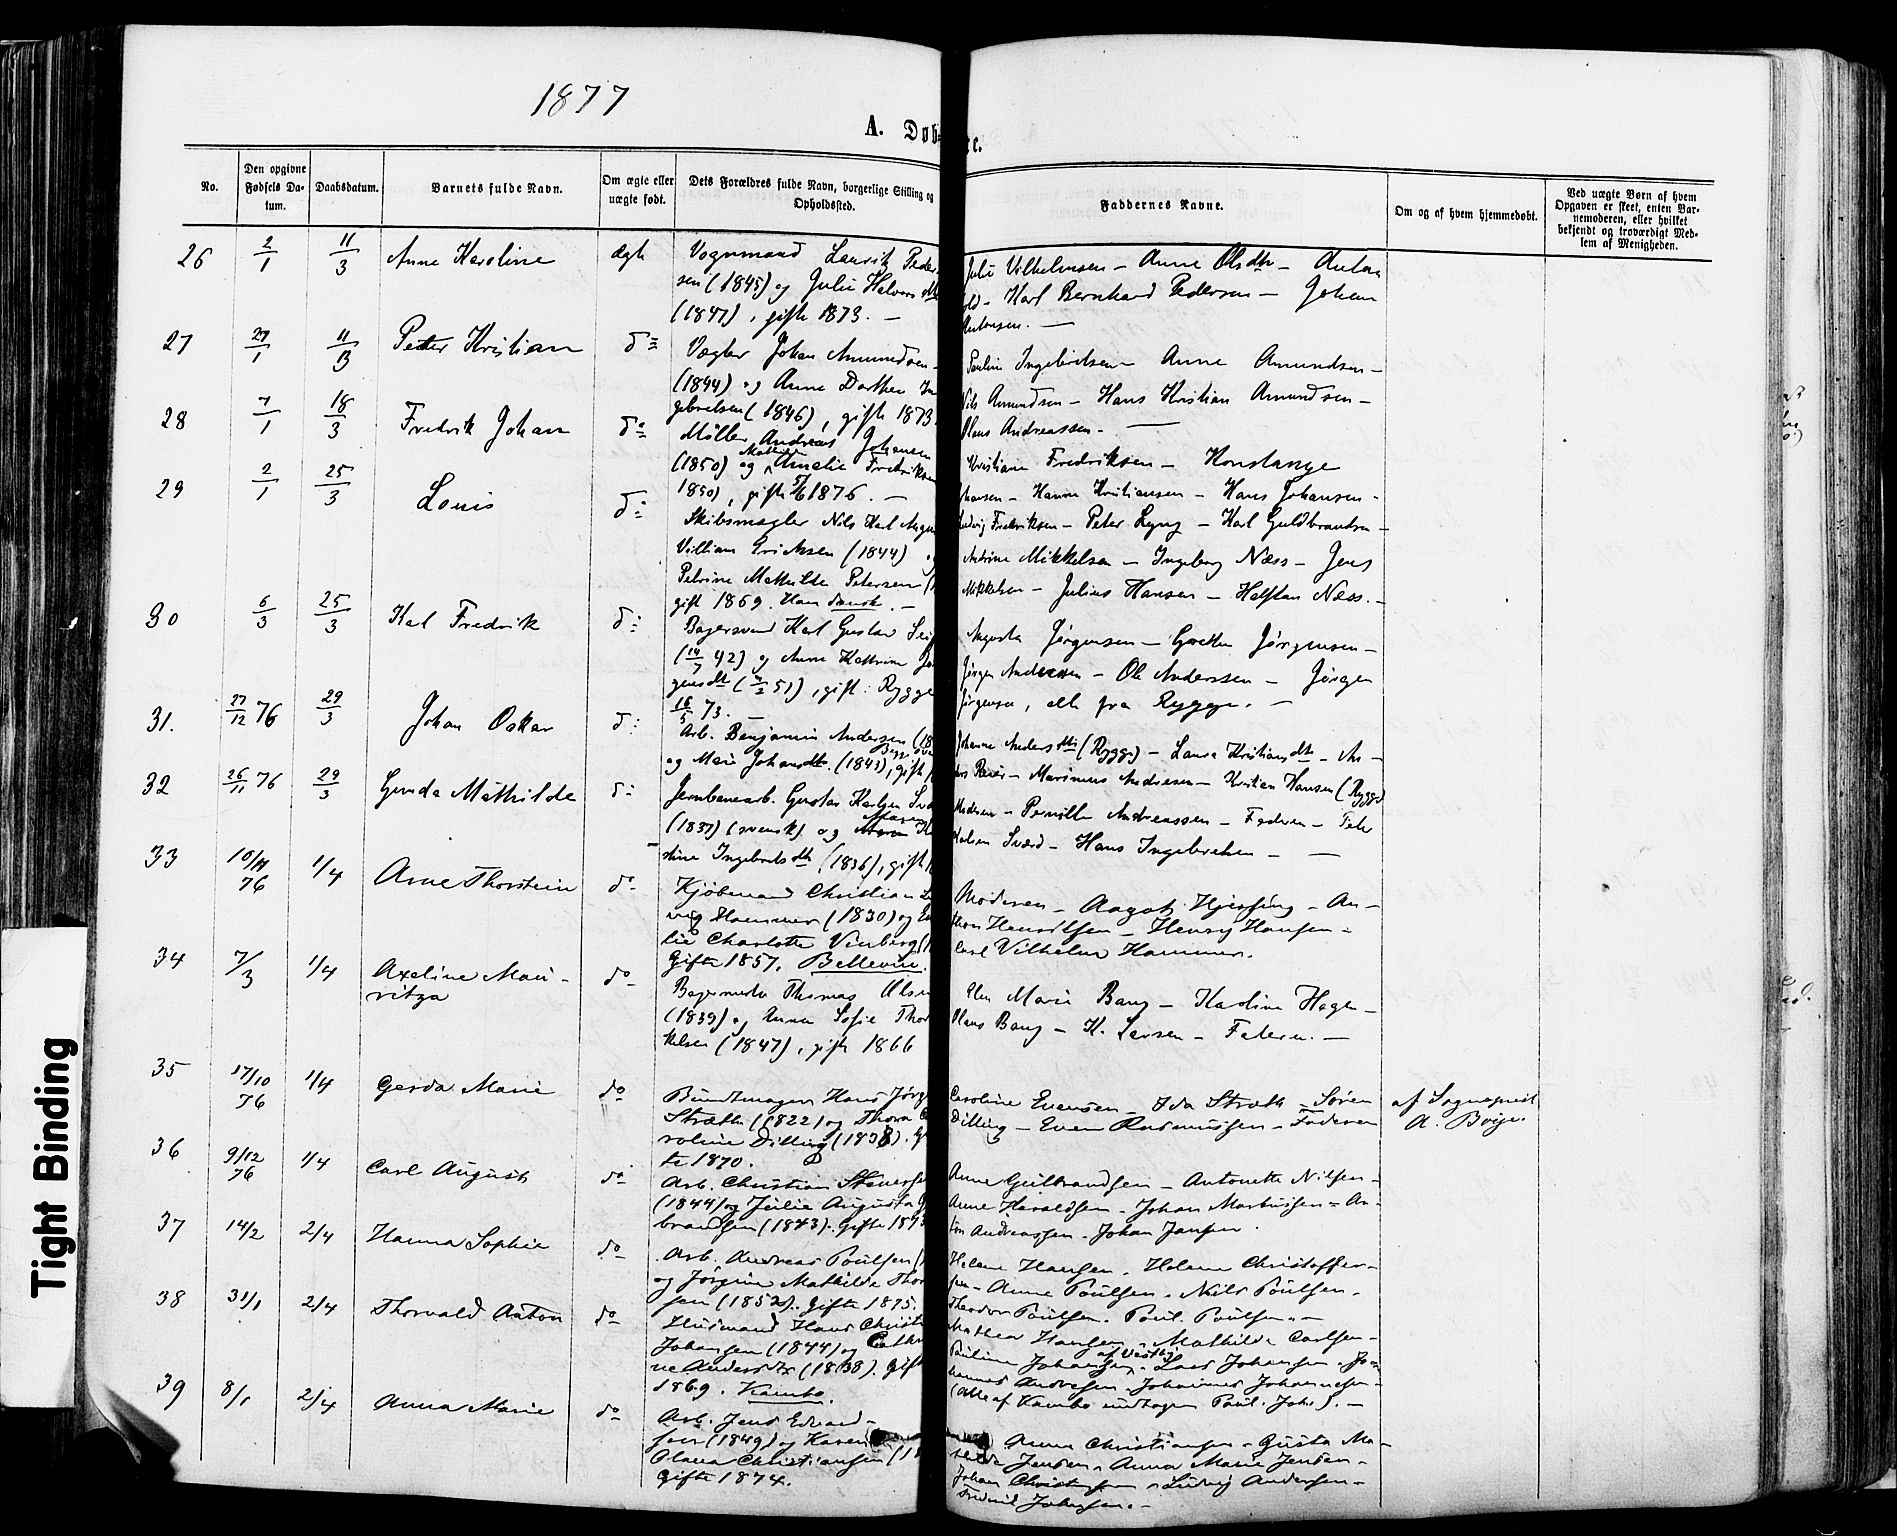 1877
A. Døb=
e.
No.
Den opgivne Fødsels Da-tum.
Daabsdatum.
Barnets fulde Navn.
Om ægte eller uægte født.
Dets Forældres fulde Navn, borgerlige Stilling og Opholdssted.
Faddernes Navne.
Om og af hvem hjemmedøbt.
Ved uægte Børn af hvem Opgaven er skeet, enten Bar-nemoderen, eller hvilket bekjendt og troværdigt Med-lem af Menigheden.
26 2/1 11/3 Anne Karoline ægte
Vognmand Laurits Peder
sen (1845) og Julie Halvors dtr
(1847), gift 1873. —
Vilhelmsen — Anne Olsdtr — Anton
Karl Bernhard Pedersen — Johan
Antonsen. —
27 27/1 11/3 Peder Kristian do
Vægter Johan Amundsen
(1844) og Anne Dorthea In
gebretsen (1846), gift 1873.
Pauline Ingebretsen — Anne Amundsen —
Nils Amundsen — Hans Kristian Amundsen —
Klaus Andreassen. —
28 7/1 18/3 Fredrik Johan do
Møller Andreas Johansen
(1850) og Mathea Amalie Fredriksen
1850), gift 1876. —
Kristiane Fredriksen — Konstanse
Johansen — Hanna Kristiansen — Hans Johansen -
Ludvig Fredriksen — Peter Lyng — Karl Guldbrandsen —
29 2/1 25/3 Louis do
Skibsmægler Nils Karl August
Villiam Ericksen (1844)
Petrine Mathilde Petersen (
gift 1869. Han dansk. —
Andrine Mikkelsen — Ingeborg Næss — Jens
Mikkelsen — Julius Hansen — Halfdan Næss. —
30 6/3 25/3 Karl Fredrik do
Bagersvend Karl Gustav
(14/7 42) og Anne Kathrine
gensdtr (7/2 51), gift i Rygge
16/5 73. —
Augusta Jørgensen — Grethe Jørgensen —
Jørgen Anderssen — Ole Anderssen — Jørgen
Jørgensen, alle fra Rygge. —
31. 27/12 76 29/3 Johan Oskar do
Arb. Benjamin Andersen (18
og Marie Johansdtr. (1843), gift
Johanne Andersdtr (Rygge) — Laura Kristiansdtr — An —
Marinus Andresen — Kristian Hansen (Rygge)
32 26/11 76 29/3 Gunda Mathilde do
Jernbanearb. Gustav Karlsen
(1837) (svensk) og Maren
stine Ingebretsdtr (1836), gift
Pernille Andreassen — Faderen — Peter
Karlsen Sværd — Hans Ingebretsen — —
33 10/11 76 1/4 Arne Thorstein do
Kjøbmand Christian
vig Hammer (1830) og
lie Charlotte Vinberg (
Gifte 1857. Bellevue.
Moderen — Aagot — An —
thon — Henrij Hansen —
Carl Vilhelm Hammer.
34 7/3 1/4 Axeline Mau-
ritza do
Bagermester Thomas Olsen
(1839) og Anna Sofie Thor
kelsen (1847), gift 1866
Marie Bang — Karoline Hagen —
Klaus Bang — K. Larsen — Faderen. —
35 17/10 76 1/4 Gerda Marie do
Bundtmager Hans Jørg
Stræth (1822) og Thora
roline Dilling (1838). Gif
te 1870.
Caroline Evensen — Ida Stræth — Søren
Dilling — Even Rasmussen — Faderen
af Sogneprest
A. Boije.
36 9/12 76 1/4 Carl August do
Arb. Christian
(1844) og Julie Augusta
brandsen (1843). Gifte 1873
Anne Gulbrandsen — Antonette Nilsen —
Anne Haraldsen — Johan Martinsen — An-
ton Andreassen — Johan Jansen.
37 14/2 2/4 Hanna Sophie do
Arb. Andreas Poulsen (
og Jørgine Mathilde Thor
sen (1852). Gifte 1875.
Helene Hansen — Helene Christoffer-
sen — Anne Poulsen — Nils Poulsen —
Theodor Poulsen — Poul Poulsen. —
38 31/1 2/4 Thorvald Anton do
Husmand Hans Christ
Johansen (1844) og Cathri
ne Andersdtr (1838). Gift
1869. Kambo.
Mathea Hansen — Mathilde Carlsen —
Pauline Johansen af Vestby — Lars Johansen — Jo-
hannes Andresen — Johannes Johannesen —
(Alle af Kambo undtagen Paul. Joh.). —
39 8/1 2/4 Anna Marie do
Arb. Jens Edvard-
sen (1849) og Karen
Olava Christiansen (18
Gifte 1874.
Anna Christiansen — Gusta Ma-
thilde Jensen — Anna Marie Jensen —
Johan Christensen — Ludvig Andersen —
Fredrik Johansen. —
Tight Binding